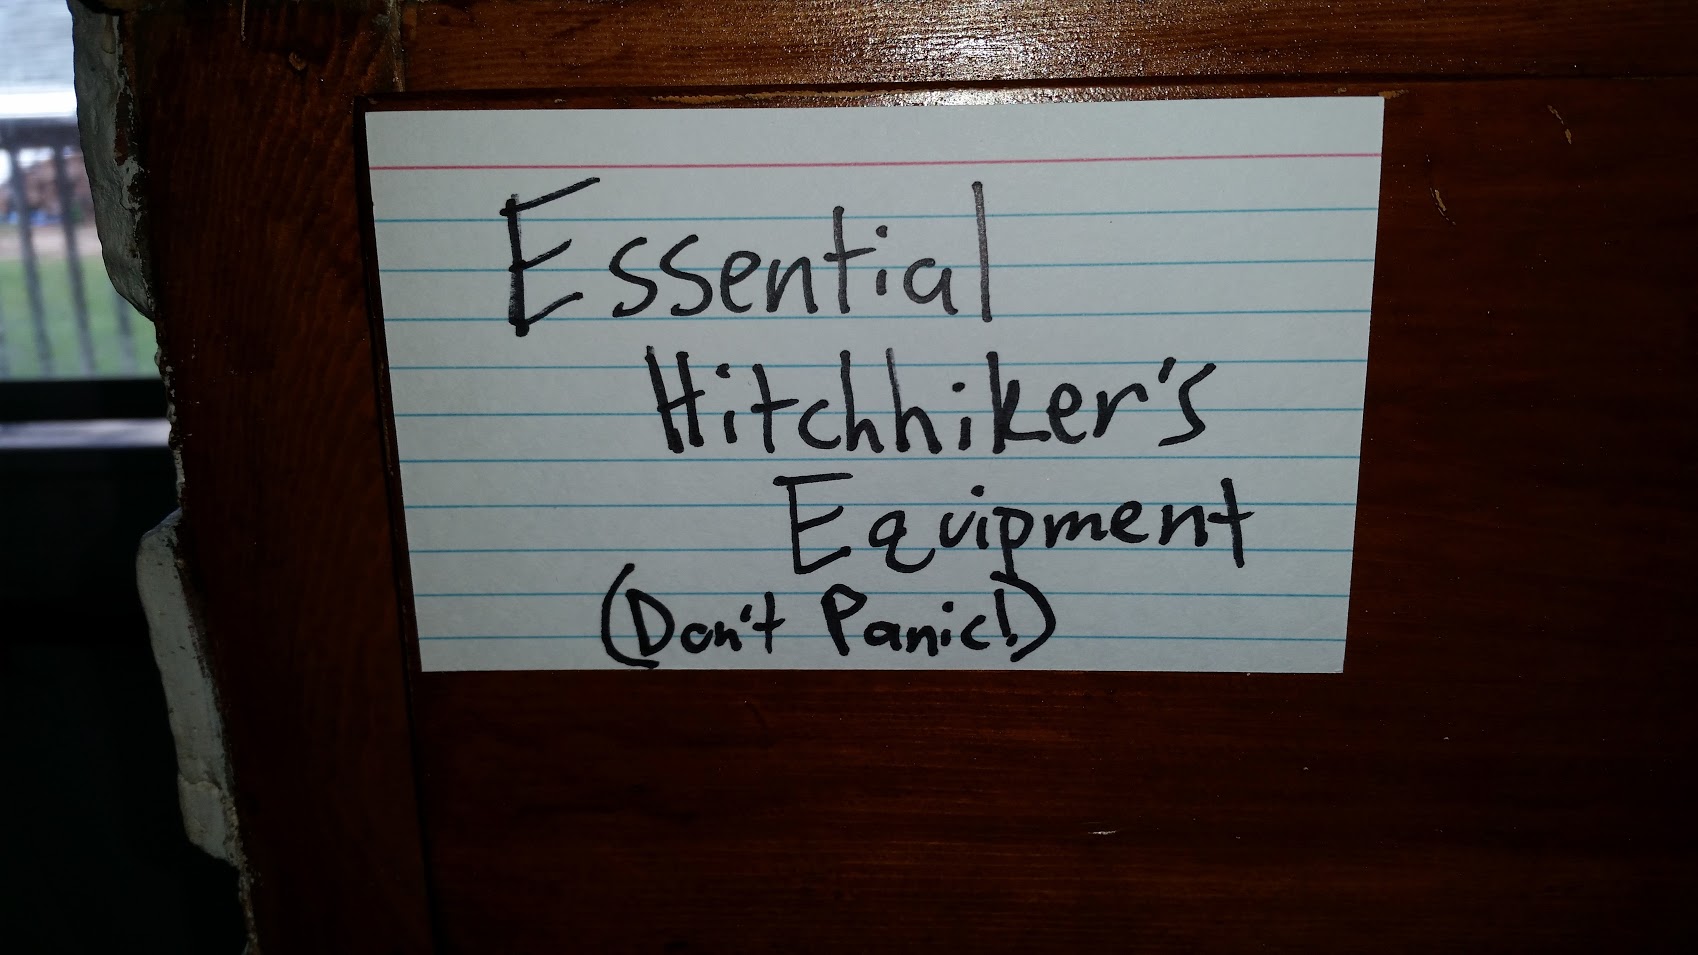 Essential
Hitchhiker's
Equipment
(Don't Panic!)